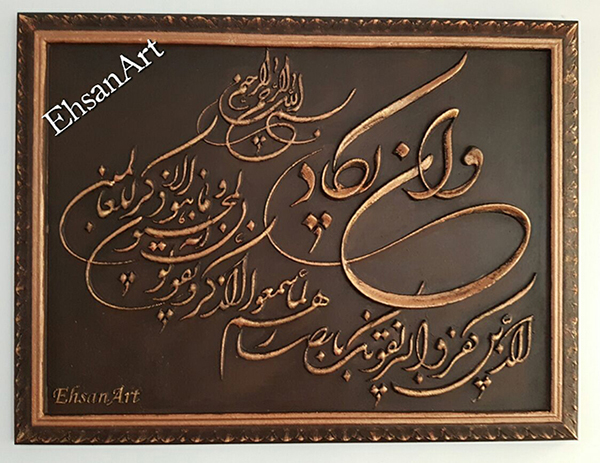 EhsanArt
بسم الله الرحمن الرحیم
وان یکاد
الذین کفروا لیزلقونک بابصارهم
لما سمعوا الذکر ویقولون
انه لمجنون
وما هو الا ذکر للعالمین
EhsanArt